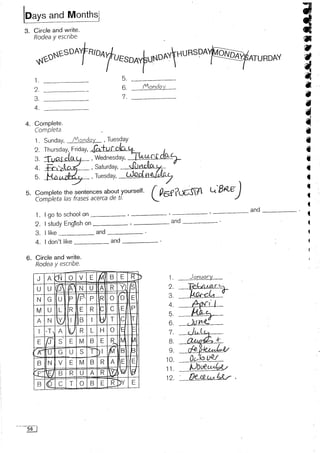 Days and Months
3. Circle and write.
Rodea y escribe.
WEDNESDAYFRIDAYTUESDAYSUNDAYTHURSDAYMONDAYSATURDAY
1.
2.
3.
4.
5.
6. Monday
7.
4. Complete.
Completa.
1. Sunday, Monday, Tuesday
2. Thursday, Friday, Saturday
3. Tuesday, Wednesday, Thursday
4. Friday, Saturday, Sunday
5. Monday, Tuesday, Wednesday
5. Complete the sentences about yourself. (RESPUESTA LIBRE)
Completa las frases acerca de ti.
1. I go to school on , , , and
2. I study English on and
3. I like and
4. I don't like and
6. Circle and write.
Rodea y escribe.
J A N O V E M B E R
U U J A N U A R Y S
N G U P P R O D E
M U L R E R C C E P
A N Y I B I U T C T
I T A R L H O E E
E J S E M B E R M M
A U G U S T I M B B
B N V E M B R A E E
F E B R U A R Y R
B O C T O B E R Y E
1. January
2. February
3. March
4. April
5. May
6. June
7. July
8. august
9.
10.
11. November
12. December
56